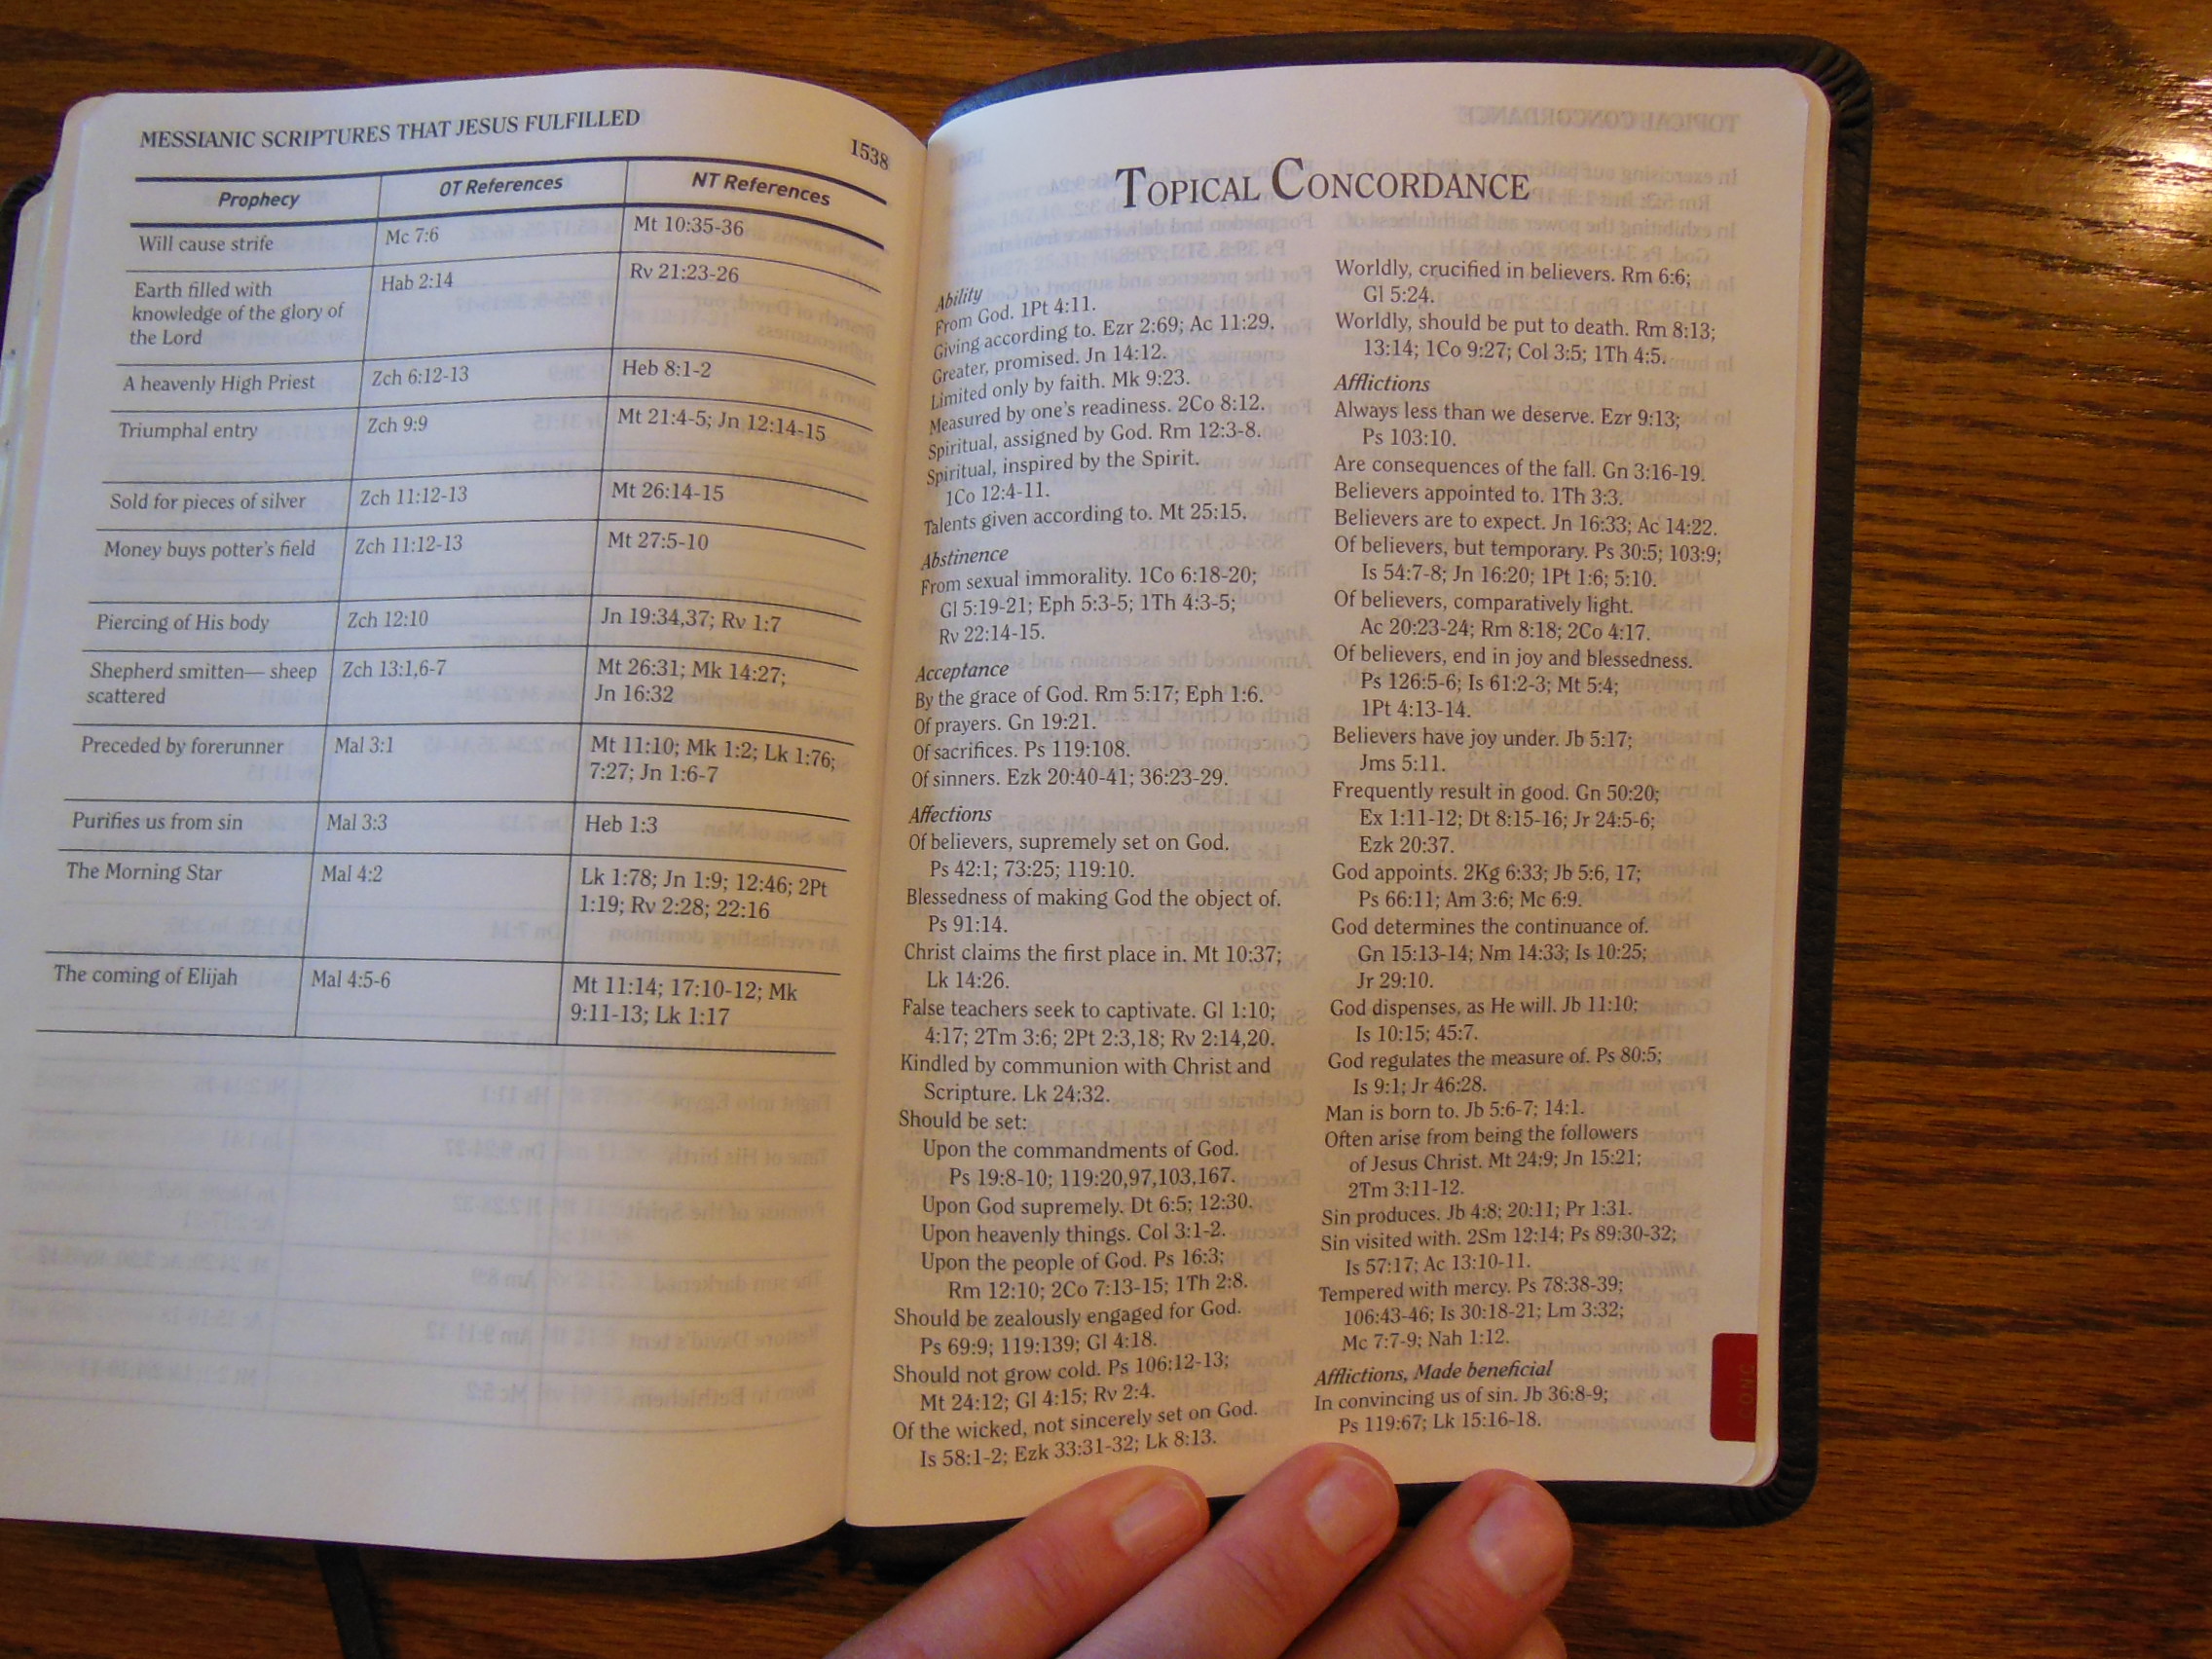 MESSIANIC SCRIPTURES THAT JESUS FULFILLED
1538
Prophecy OT References NT References
Will cause strife Mc 7:6 Mt 10:35-36
Earth filled with Hab 2:14 Rv 21:23-26
knowledge of the glory of
the Lord
A heavenly High Priest Zch 6:12-13 Heb 8:1-2
Triumphal entry Zch 9:9 Mt 21:4-5; Jn 12:14-15
Sold for pieces of silver Zch 11:12-13 Mt 26:14-15
Money buys potter's field Zch 11:12-13 Mt 27:5-10
Piercing of His body Zch 12:10 Jn 19:34,37; Rv 1:7
Shepherd smitten— sheep Zch 13:1,6-7 Mt 26:31; Mk 14:27;
scattered Jn 16:32
Preceded by forerunner Mal 3:1 Mt 11:10; Mk 1:2; Lk 1:76;
7:27; Jn 1:6-7
Purifies us from sin Mal 3:3 Heb 1:3
The Morning Star Mal 4:2 Lk 1:78; Jn 1:9; 12:46; 2Pt
1:19; Rv 2:28; 22:16
The coming of Elijah Mal 4:5-6 Mt 11:14; 17:10-12; Mk
9:11-13; Lk 1:17
TOPICAL CONCORDANCE
Ability
From God. 1Pt 4:11.
Giving according to. Ezr 2:69; Ac 11:29.
Greater, promised. Jn 14:12.
Limited only by faith. Mk 9:23.
Measured by one's readiness. 2Co 8:12.
Spiritual, assigned by God. Rm 12:3-8.
Spiritual, inspired by the Spirit.
1Co 12:4-11.
Talents given according to. Mt 25:15.
Abstinence
From sexual immorality. 1Co 6:18-20;
Gl 5:19-21; Eph 5:3-5; 1Th 4:3-5;
Rv 22:14-15.
Acceptance
By the grace of God. Rm 5:17; Eph 1:6.
Of prayers. Gn 19:21.
Of sacrifices. Ps 119:108.
Of sinners. Ezk 20:40-41; 36:23-29.
Affections
Of believers, supremely set on God.
Ps 42:1; 73:25; 119:10.
Blessedness of making God the object of.
Ps 91:14.
Christ claims the first place in. Mt 10:37;
Lk 14:26.
False teachers seek to captivate. Gl 1:10;
4:17; 2Tm 3:6; 2Pt 2:3,18; Rv 2:14,20.
Kindled by communion with Christ and
Scripture. Lk 24:32.
Should be set:
Upon the commandments of God.
Ps 19:8-10; 119:20,97,103,167.
Upon God supremely. Dt 6:5; 12:30.
Upon heavenly things. Col 3:1-2.
Upon the people of God. Ps 16:3;
Rm 12:10; 2Co 7:13-15; 1Th 2:8.
Should be zealously engaged for God.
Ps 69:9; 119:139; Gl 4:18.
Should not grow cold. Ps 106:12-13;
Mt 24:12; Gl 4:15; Rv 2:4.
Of the wicked, not sincerely set on God.
Is 58:1-2; Ezk 33:31-32; Lk 8:13.
Worldly, crucified in believers. Rm 6:6;
Gl 5:24.
Worldly, should be put to death. Rm 8:13;
13:14; 1Co 9:27; Col 3:5; 1Th 4:5.
Afflictions
Always less than we deserve. Ezr 9:13;
Ps 103:10.
Are consequences of the fall. Gn 3:16-19.
Believers appointed to. 1Th 3:3.
Believers are to expect. Jn 16:33; Ac 14:22.
Of believers, but temporary. Ps 30:5; 103:9;
Is 54:7-8; Jn 16:20; 1Pt 1:6; 5:10.
Of believers, comparatively light.
Ac 20:23-24; Rm 8:18; 2Co 4:17.
Of believers, end in joy and blessedness.
Ps 126:5-6; Is 61:2-3; Mt 5:4;
1Pt 4:13-14.
Believers have joy under. Jb 5:17;
Jms 5:11.
Frequently result in good. Gn 50:20;
Ex 1:11-12; Dt 8:15-16; Jr 24:5-6;
Ezk 20:37.
God appoints. 2Kg 6:33; Jb 5:6, 17;
Ps 66:11; Am 3:6; Mc 6:9.
God determines the continuance of.
Gn 15:13-14; Nm 14:33; Is 10:25;
Jr 29:10.
God dispenses, as He will. Jb 11:10;
Is 10:15; 45:7.
God regulates the measure of. Ps 80:5;
Is 9:1; Jr 46:28.
Man is born to. Jb 5:6-7; 14:1.
Often arise from being the followers
of Jesus Christ. Mt 24:9; Jn 15:21;
2Tm 3:11-12.
Sin produces. Jb 4:8; 20:11; Pr 1:31.
Sin visited with. 2Sm 12:14; Ps 89:30-32;
Is 57:17; Ac 13:10-11.
Tempered with mercy. Ps 78:38-39;
106:43-46; Is 30:18-21; Lm 3:32;
Mc 7:7-9; Nah 1:12.
Afflictions, Made beneficial
In convincing us of sin. Jb 36:8-9;
Ps 119:67; Lk 15:16-18.